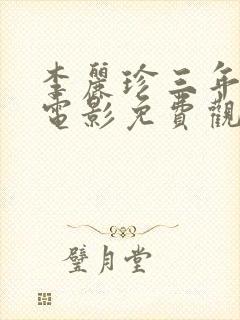 李麗珍三年
電影免費觀
璧月堂